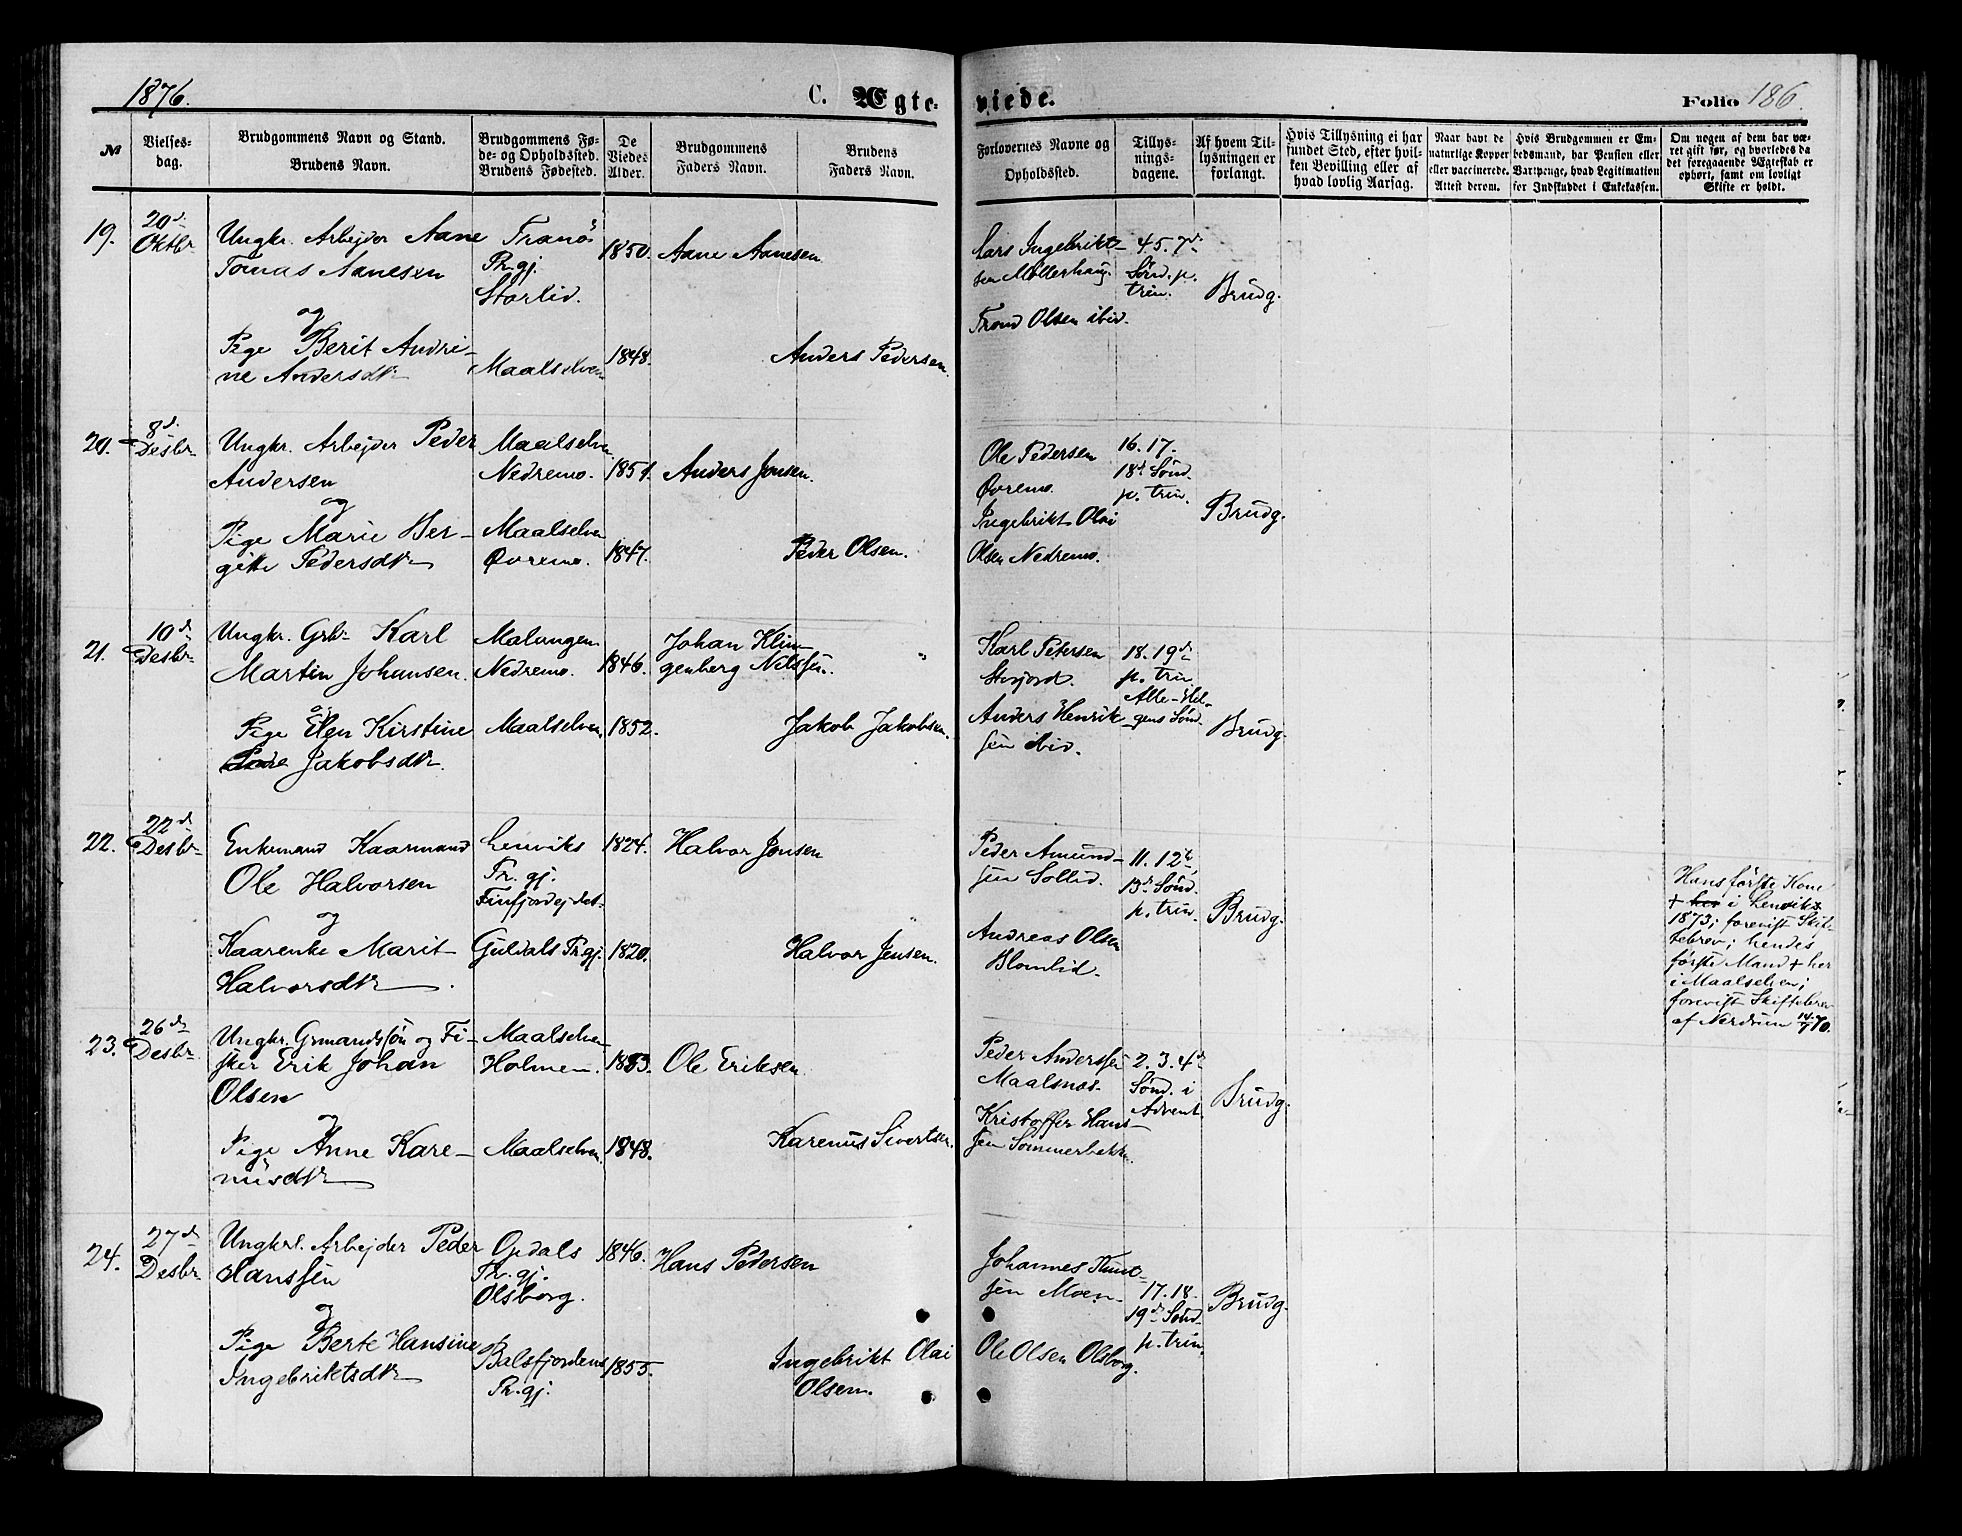 1876.
C. Ægte-
viede.
Folio 186.
№
Vielses-
dag.
Brudgommens Navn og Stand.
Brudens Navn.
Brudgommens Fø-
de- og Opholdssted.
Brudens Fødested.
De
Viedes
Alder.
Brudgommens
Faders Navn.
Brudens
Faders Navn.
Forlovernes Navne og
Opholdssted.
Tillys-
nings-
dagene.
Af hvem Til-
lysningen er
forlangt.
Hvis Tillysning ei har
fundet Sted, efter hvil-
ken Bevilling eller af
hvad lovlig Aarsag.
Naar havt de
naturlige Kopper
eller vaccinerede.
Attest derom.
Hvis Brudgommen er Em-
bedsmand, har Pension eller
Vartpenge, hvad Legitimation
for Indskuddet i Enkekassen.
Om nogen af dem har væ-
ret gift før, og hvorledes da
det foregaaende Ægteskab er
ophørt, samt om lovligt
Skifte er holdt.
19.
20d.
Oktbr
Ungkr. Arbejder Aane
Tomas Aanesen
og
Pige Berit Andri-
ne Andersdtr
Tranø
Pr.gj.
Storlid.
Maalselven
1850.
1848.
Aane Aanesen
Anders Pedersen.
Lars Ingebrikt-
sen Møllerhaug.
Trond Olsen ibid.
4.5.7de
Sønd. p.
trin.
Brudg.
20.
8d.
Desbr
Ungkr. Arbejder Peder
Andersen
og
Pige Marie Ber-
gitte Pedersdtr
Maalselven
Nedremo.
Maalselven
Øvremo.
1851.
1847.
Anders Jonsen.
Peder Olsen.
Ole Pedersen
Øvremo.
Ingebrikt Olai
Olsen Nedremo.
16. 17.
18d Sønd.
p. trin.
Brudg.
21.
10d
Desbr
Ungkr. Grbr Karl
Martin Johansen.
og
Pige Elen Kirstine
Jakobsdtr
Malangen
Nedremo.
Maalselven
1846.
1852.
Johan Klin-
genberg Nilssen.
Jakob Jakobsen.
Karl Petersen
Storjord.
Anders Henrik-
sen ibid.
18. 19de
p. trin
Alle-Hel-
gens Sønd.
Brudg.
22.
22d
Desbr
Enkemand Kaarmand
Ole Halvorsen
og
Kaarenke Marit
Halvorsdtr
Lenviks
Pr. gj.
Finfjordejdet.
Guldals Pr.gj.
1824.
1820.
Halvor Jonsen
Halvor Jensen.
Peder Amund-
sen Sollid.
Andreas Olsen
Blomlid.
11. 12te
13d Sønd.
p. trin.
Brudg.
Hans første Kone
+ her i Lenviks
1873; forevist Skif-
tebrev; hendes
første Mand + her
i Maalselven;
forevist Skiftebrev
af Nordrum 14/7 70.
23.
26d
Desbr
Ungkr. Grmandssøn og Fi-
sker Erik Johan
Olsen
og
Pige Anne Kare-
niusdtr
Maalselven
Holmen.
Maalselven
1853.
1848.
Ole Eriksen
Karenus Sivertsen.
Peder Anderssen
Maalsnes.
Kristoffer Hans-
sen Sommerbakk.
2. 3. 4d
Sønd. i
Advent
Brudg.
24.
27d
Desbr
Ungkrl. Arbejder Peder
Hanssen
og
Pige Berte Hansine
Ingebriktsdtr
Opdals
Pr. gj.
Olsborg.
Balsfjordens
Pr.gj.
1846.
1855.
Hans Pedersen
Ingebrikt Olai
Olsen.
Johannes Knut-
sen Moen.
Ole Olsen Olsborg.
17. 18.
19d Sønd.
p. trin.
Brudg.